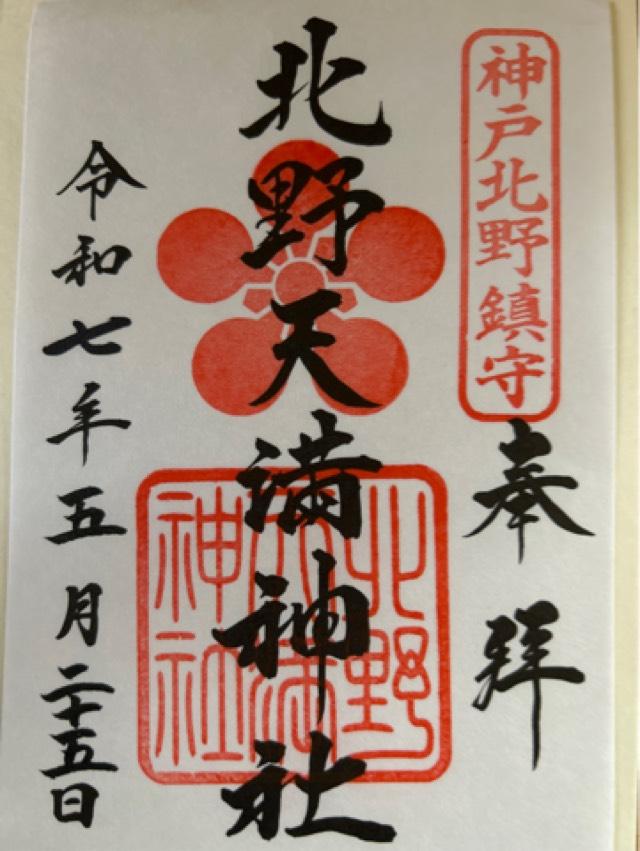 神戸北野鎮守
奉拜
北野天満神社
北野天満神社
令和七年五月二十五日